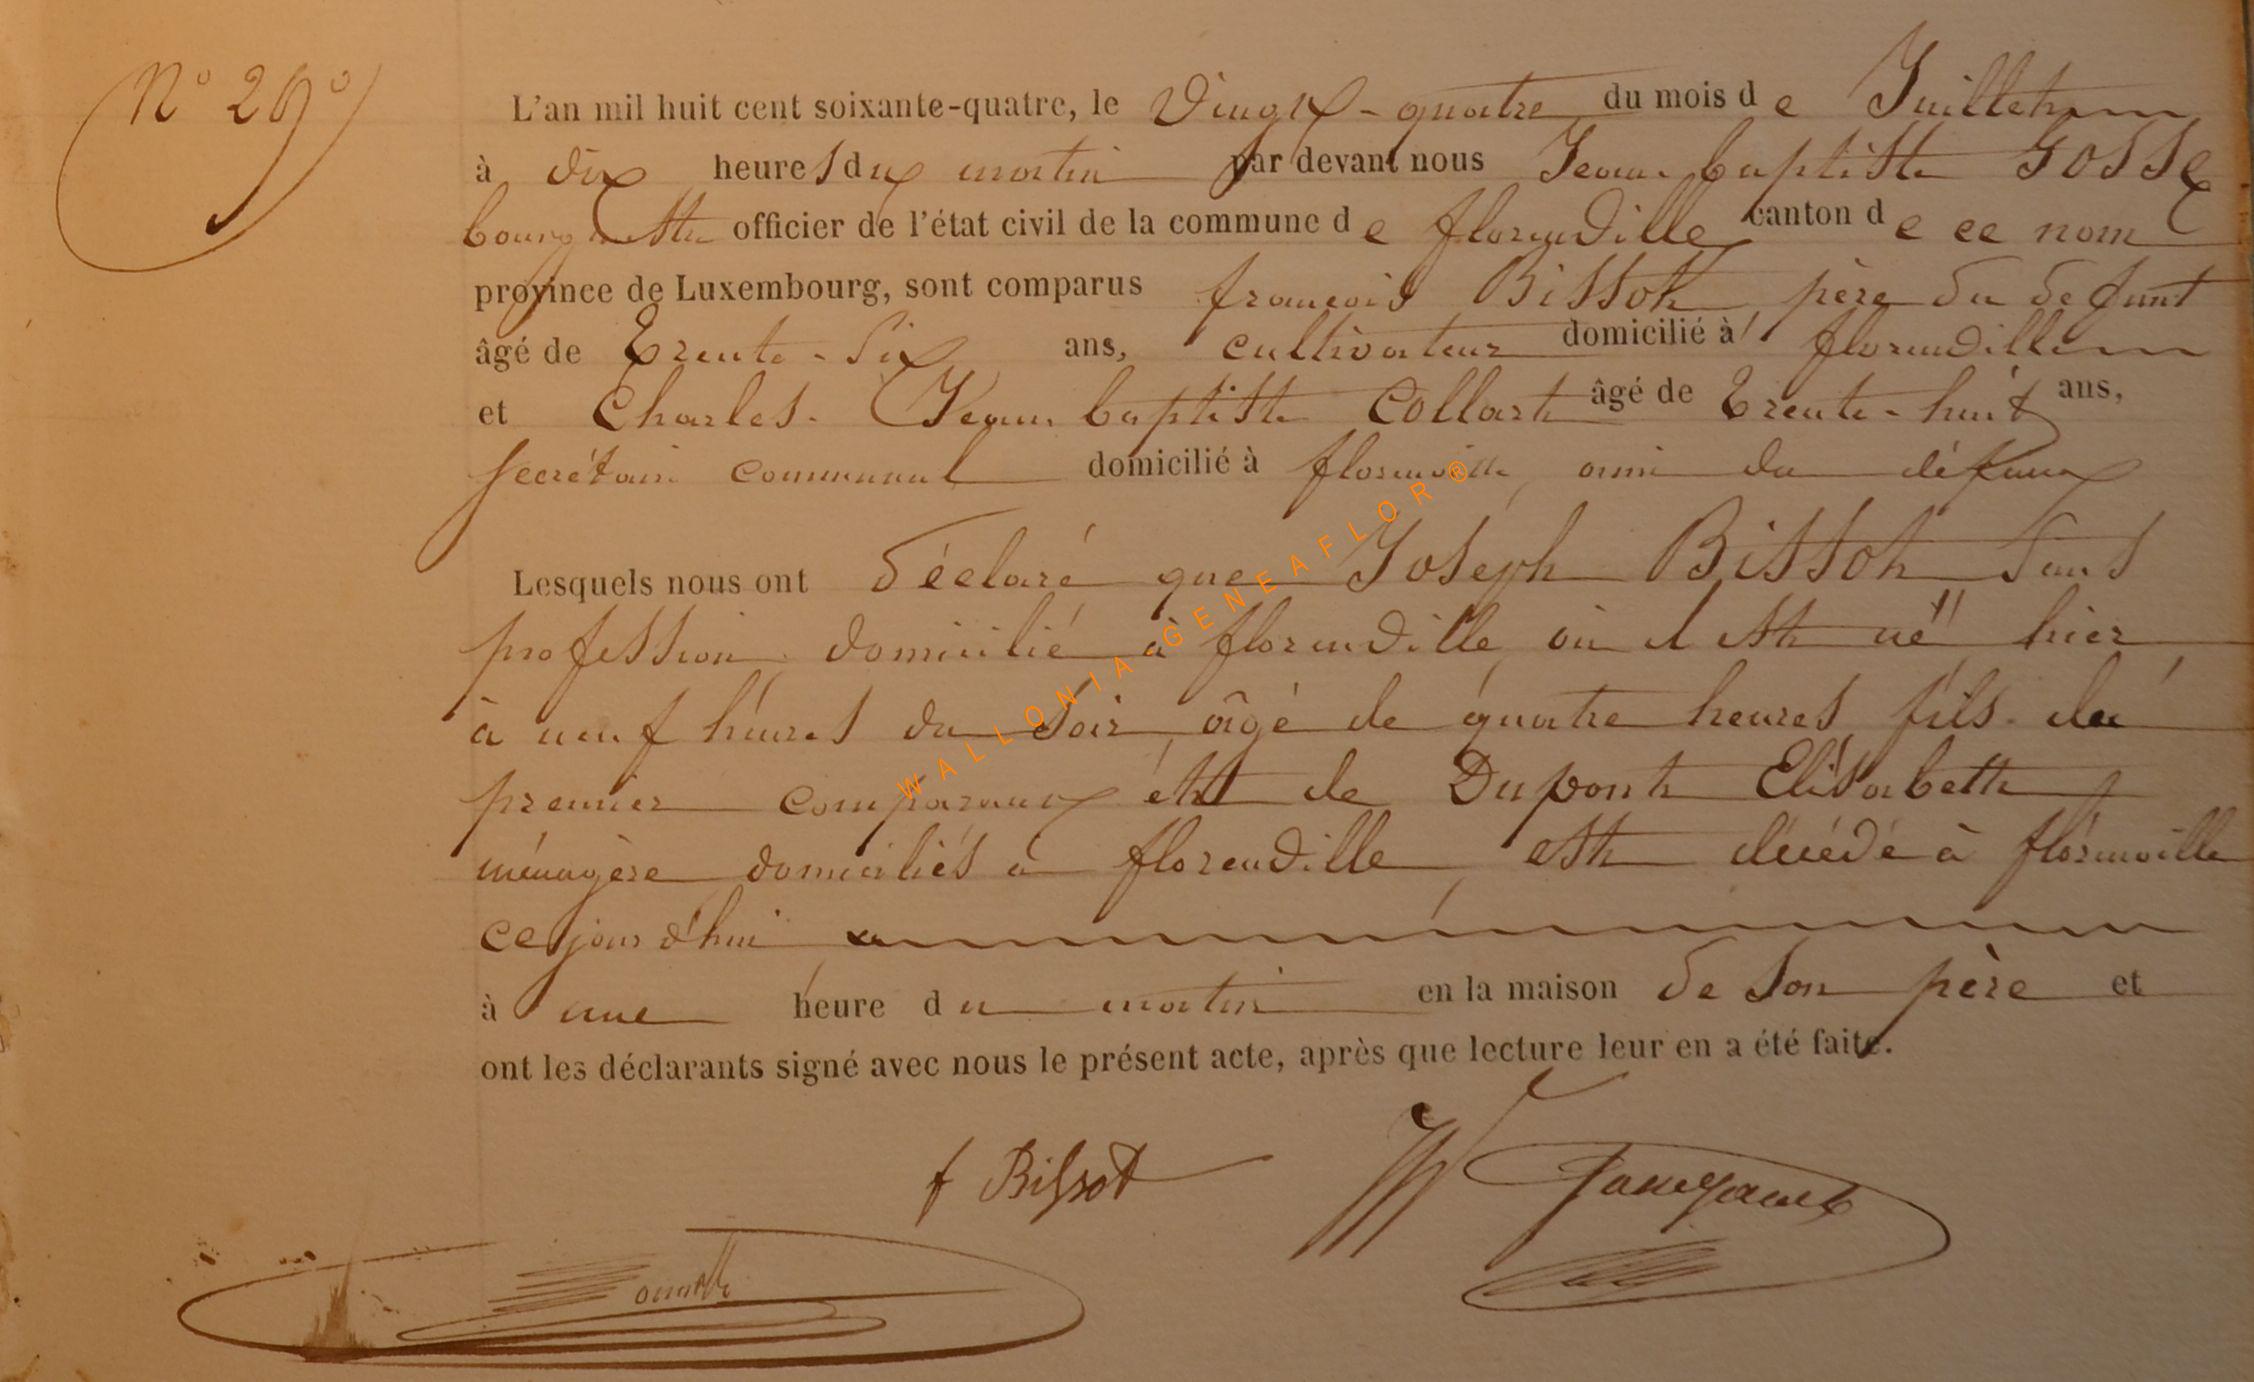 N° 29
L'an mil huit cent soixante-quatre, le Vingt-quatre du mois de Juillet
à dix heures du matin par devant nous Jean baptiste Gosse
bourgmestre officier de l'état civil de la commune de florenville canton de ce nom
province de Luxembourg, sont comparus françois Bissot père du defunt
âgé de trente-six ans, cultivateur domicilié à florenville
et Charles-Jean baptiste Collart âgé de trente-huit ans,
secrétaire communal domicilié à florenville, ami du défunt
Lesquels nous ont déclaré que Joseph Bissot sans
profession, domicilié à florenville où il est né hier
à neuf heures du soir, âgé de quatre heures, fils du
premier comparant et de Dupont Elisabeth,
ménagère domiciliés à florenville, est décédé à florenville
ce jourd'hui
à une heure du matin en la maison de son père et
ont les déclarants signé avec nous le présent acte, après que lecture leur en a été faite.
f Bissot
WALLONIA GENEAFLOR®